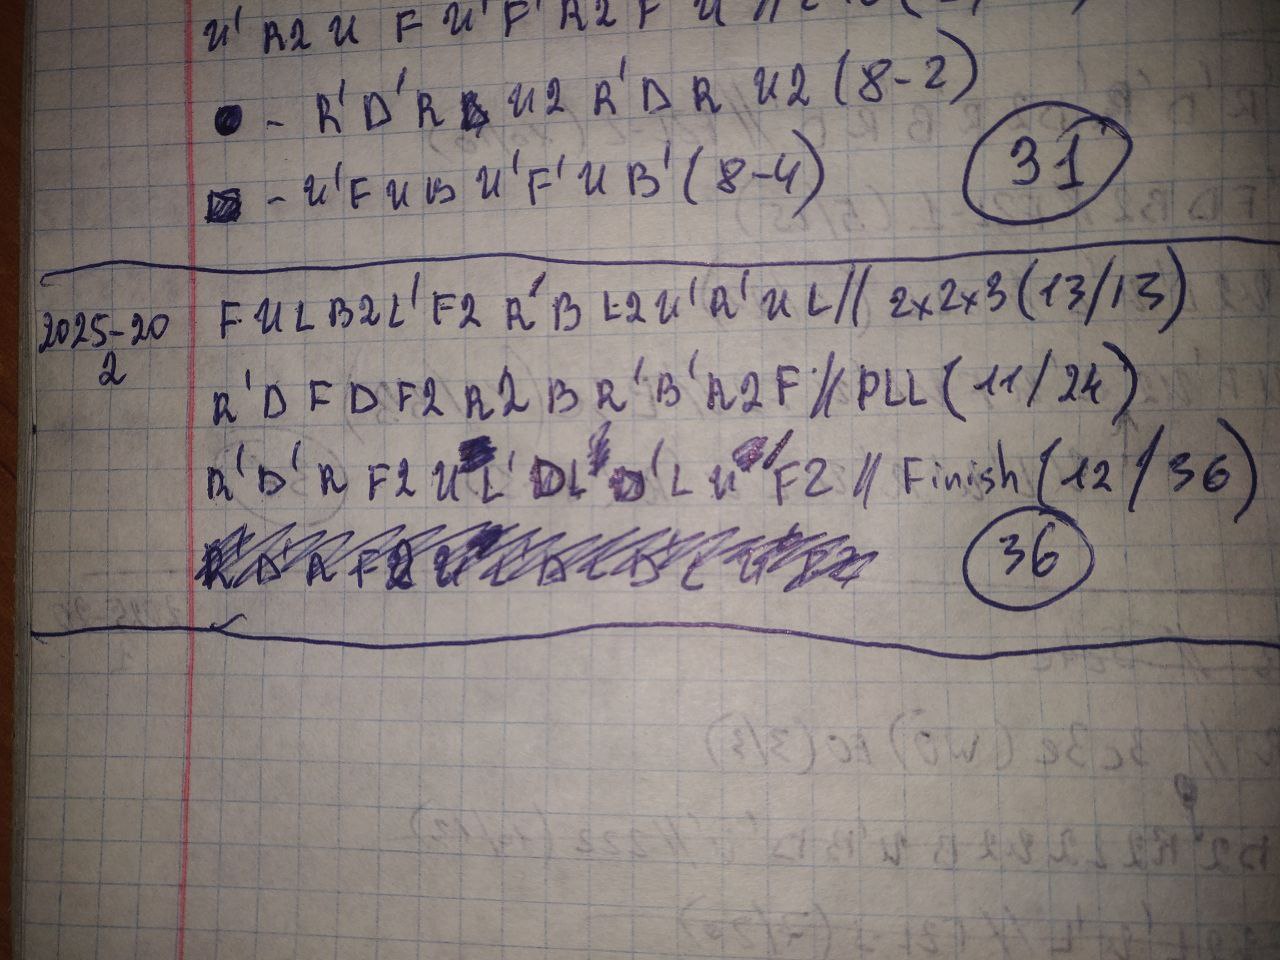 U' R2 U F U' F' R2 F U //
● - R' D' R U2 R' D R U2 (8-2)
■ - U' F U B U' F' U B' (8-4)
31
2025-20
2
F U L B2 L' F2 R' B L2 U' R' U L // 2x2x3 (13/13)
R' D F D F2 R2 B R' B' R2 F // PLL (11/24)
R' D' R F2 U L' D L D' L U' F2 // Finish (12/36)
36